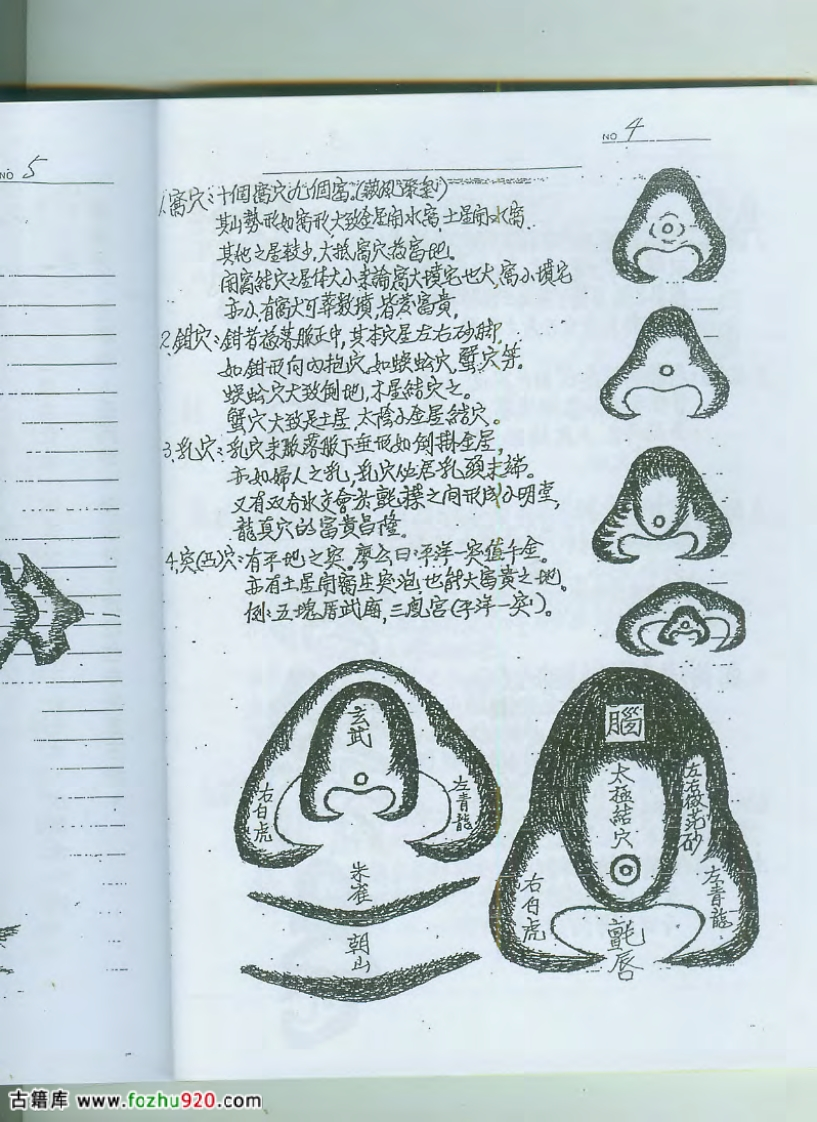 NO 5
NO 4
1.窩穴:十個窩穴九個富。(藏風聚氣)
其山勢形如窩形大致金星開水窩.土星開水窩.
其他之星較少,大抵窩穴為富地。
開窩結穴之星体大小來論窩大墳宅也大,窩小墳宅
亦小,有窩大可葬數墳,皆發富貴,
2.鉗穴:鉗者落脈正中,其本穴星左右砂脚,
如鉗形向內抱穴,如蜈蚣穴,蟹穴等。
蜈蚣穴大致倒地,木星結穴之。
蟹穴大致是土星,太陰金星結穴。
3.乳穴:乳穴來脈落脈下垂形如倒掛金星,
亦如婦人之乳,乳穴位居乳頭末端。
又有双合水交會於氈褥之間形成小明堂,
龍真穴的富貴昌隆。
4.突(凸)穴:有平地之突.廖公曰:平洋一突值千金。
亦有土星開窩生突泡也能大富貴之地。
例:五塊厝武廟,三鳳宮(平洋一突)。
玄武
右白虎
左青龍
朱雀
朝山
腦
太極結穴
左右微茫砂
右白虎
左青龍
氈唇
古籍库 www.fozhu920.com